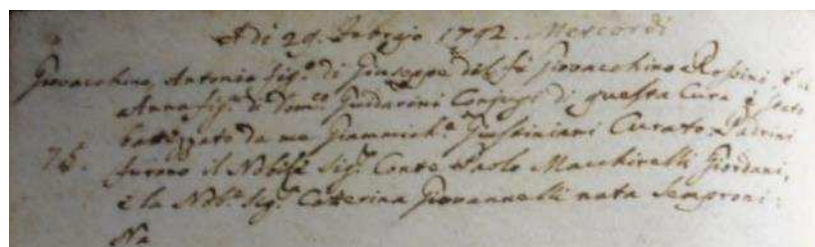 Adi 29. Febrajo 1792. Mercordi
Giovacchino, Antonio fig.o di Giuseppe del fù Giovacchino Rossini, e di
Anna fig.a di Dom.co Guidarini Conjugi di questa Cura è stato
battezzato da me Giammich.e Giustiniani Curato Padrini
75. furono il Nobile Sig.r Conte Paolo Macchirelli Giordani,
e la Nob.e Sig.a Catterina Giovannelli nata Semproni:
Na